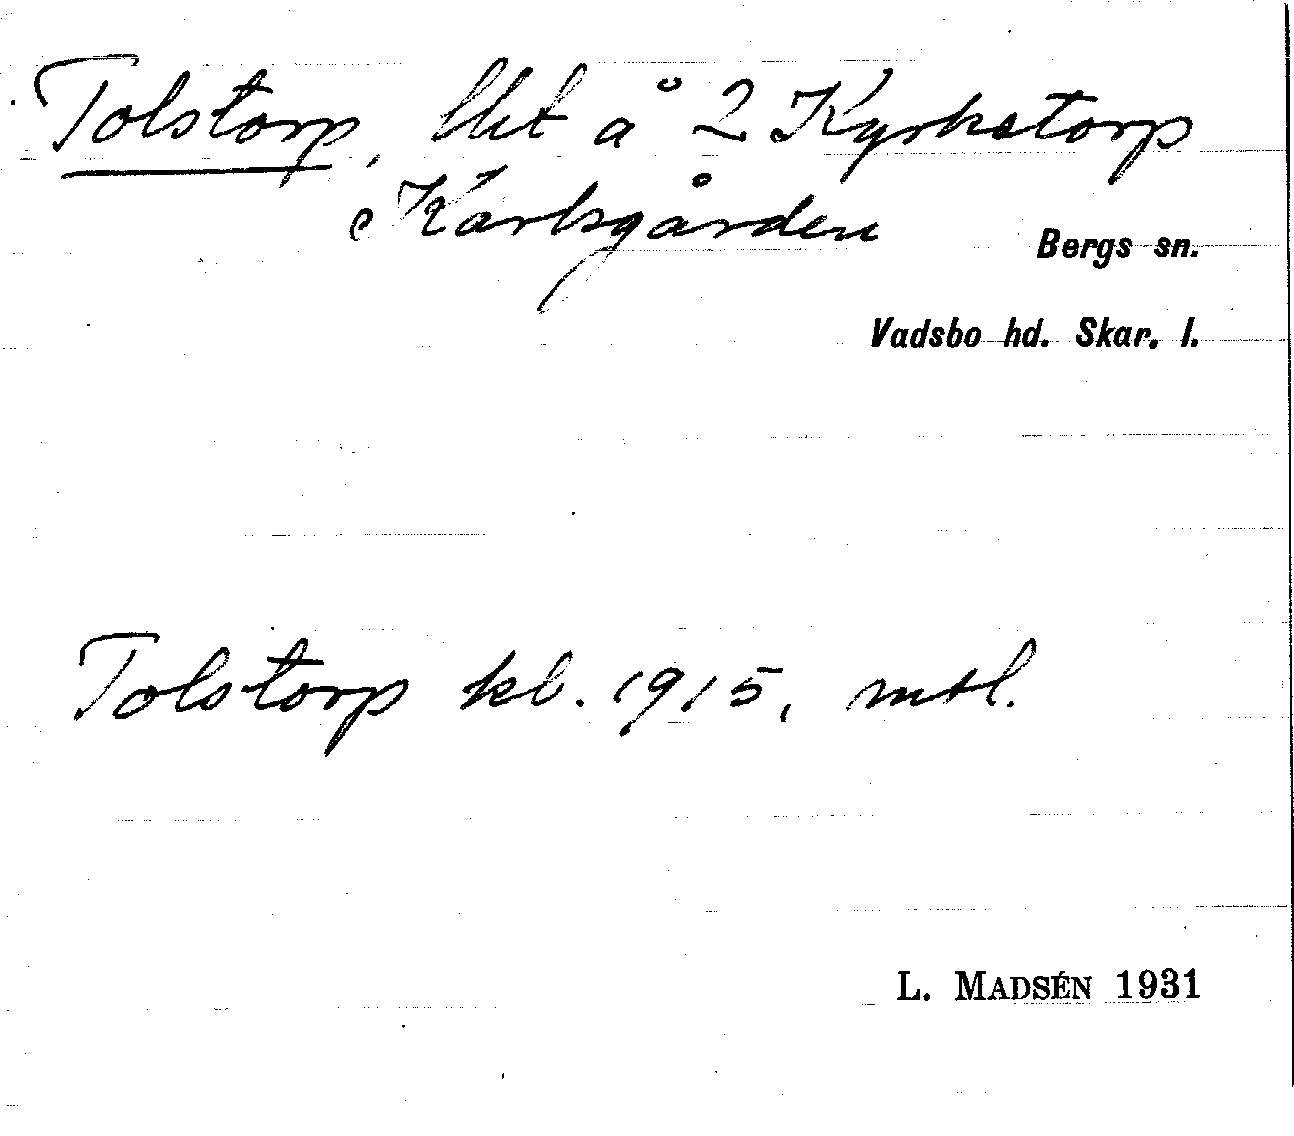 Tolstorp, lht å 2 Kyrketorp
Karlsgården
Bergs sn.
Vadsbo hd. Skar. l.
Tolstorp kb. 1915, mtl.
L. MADSÉN 1931